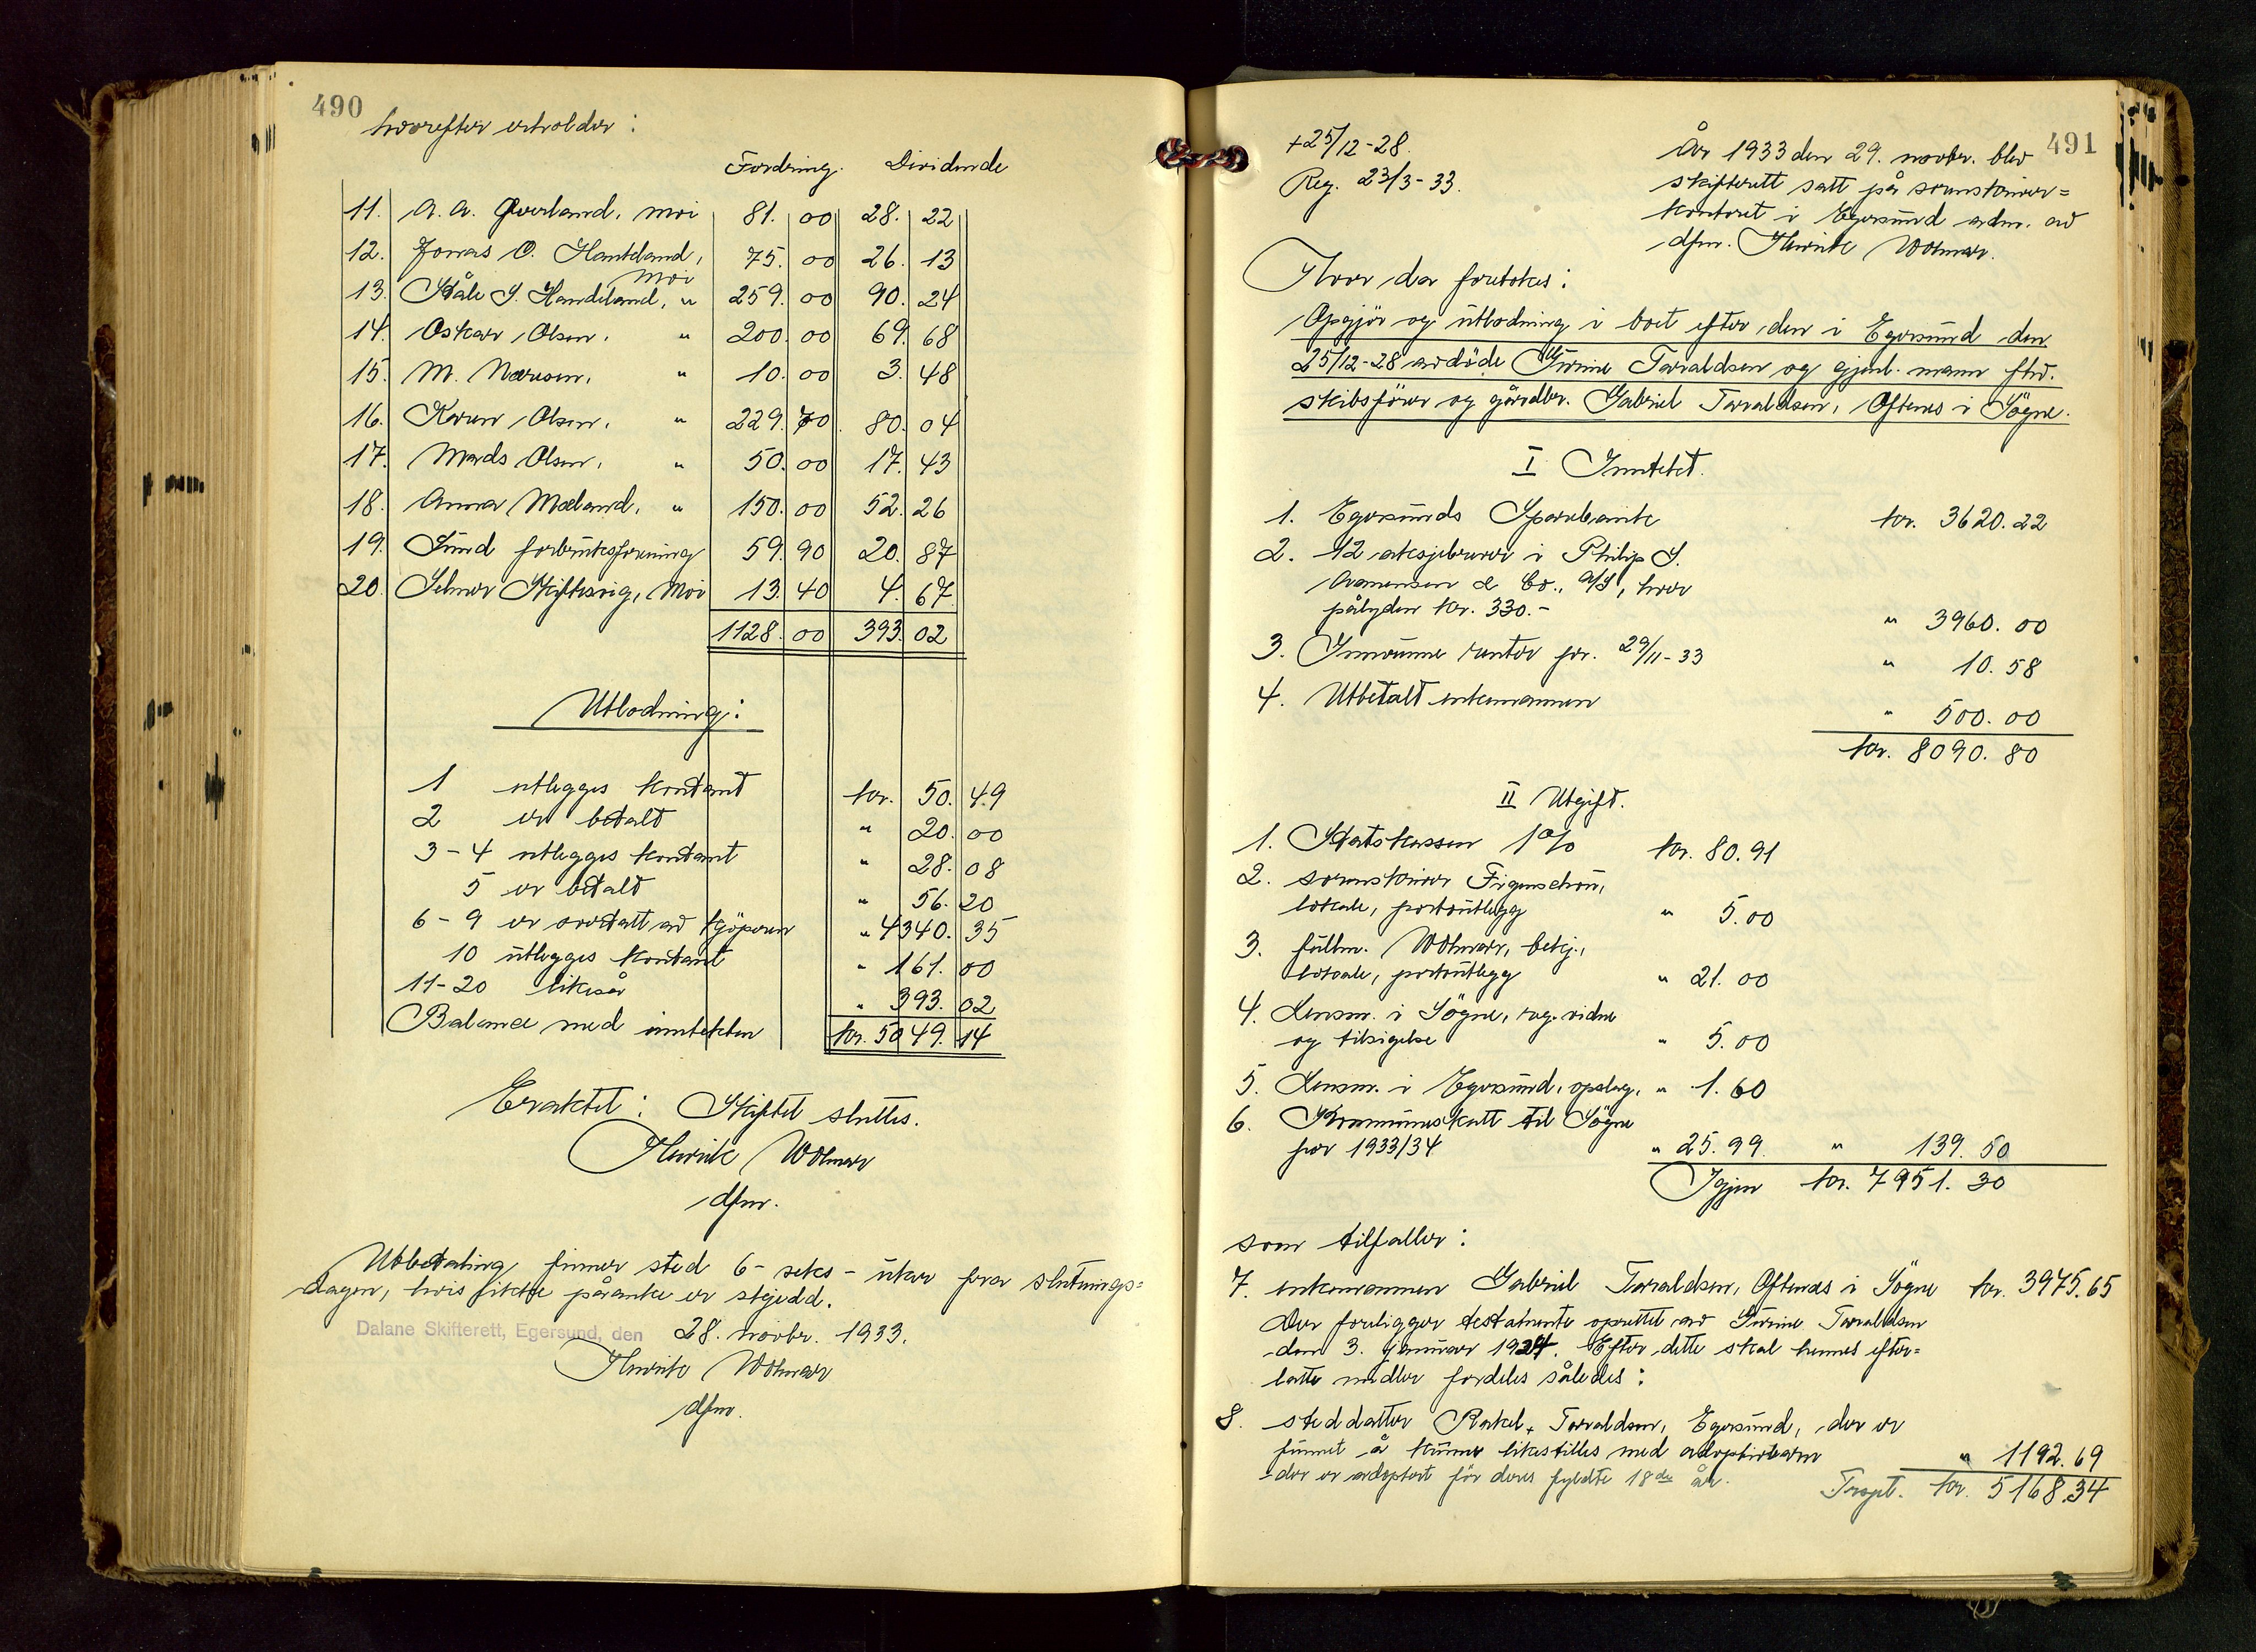 490
hvorefter erholder:
Fordring. Dividende
11. A. A. Överland, Moi 81. 00 28. 22
12. Jonas O. Hamteland, Moi 75. 00 26. 13
13. Ståle S. Handeland, " 259. 00 90. 24
14. Oskar Olsen, " 200. 00 69. 68
15. M. Naresen, " 10. 00 3. 48
16. Karen Olsen, " 229. 70 80. 04
17. Mads Olsen, " 50. 00 17. 43
18. Anna Mæland, " 150. 00 52. 26
19. Lund forbruksforening 59. 90 20. 87
20. Selmer Skiftesvig, Moi 13. 40 4. 67
1128. 00 393. 02
Utlodning:
1 utlegges kontant kr. 50. 49
2 er betalt " 20. 00
3-4 utlegges kontant " 28. 08
5 er betalt " 56. 20
6-9 er overtatt av kjöperen " 4340. 35
10 utlegges kontant " 161. 00
11-20 likeså " 393. 02
Balance med inntekten kr. 5049. 14
Eraktet: Skiftet sluttes.
Henrik Wolmar
dfm.
Utbetaling finner sted 6-seks-uker fra slutnings=
dagen, hvis ikke påanke er skjedd.
Dalane Skifterett, Egersund, den 28. novbr. 1933.
Henrik Wolmar
dfm.
491
+25/12-28.
Reg. 23/3-33.
År 1933 den 29. novbr. blev
skifterett satt på sorenskriver=
kontoret i Egersund adm. av
dfm. Henrik Wolmar.
Hvor da foretokes:
Opgjör og utlodning i boet efter den i Egersund den
25/12-28 avdöde Gurine Taraldsen og gjenl. mann fhv.
skibsförer og gårdbr. Gabriel Tarraldsen, Oftenes i Sögne.
I Inntekt.
1. Egersunds Sparebank kr. 3620. 22
2. 12 aksjebrever i Philip S.
Aamensen & Co., A/S, hver
pålyden kr. 330.- " 3960. 00
3. Innvunne renter pr. 29/11-33 " 10. 58
4. Utbetalt enkemannen " 500. 00
kr. 8090. 80
II Utgift.
1. Statskassen 1% kr. 80. 91
2. sorenskriver Figenschou,
lokale, portoutlegg " 5. 00
3. fullm. Wolmar, bekj.,
lokale, portoutlegg " 21. 00
4. Lensm. i Sögne, reg. vidne
og tilsigelse " 5. 00
5. Lensm. i Egersund, opslag, " 1. 60
6. Kommuneskatt til Sögne
for 1933/34 " 25. 99. " 139. 50
Igjen kr. 7951. 30
som tilfaller:
7. enkemannen Gabriel Tarraldsen, Oftenes i Sögne kr. 3975. 65
Der foreligger testamente oprettet av Gurine Tarraldsen
den 3. januar 1924. Efter dette skal hennes efter=
latte midler fordeles således:
8. steddatter Rakel Tarraldsen, Egersund, der er
funnet å kunne likestilles med adoptivbarn
der er adoptert för deres fyldte 18de år. " 1192. 69
Trspt. kr. 5168. 34